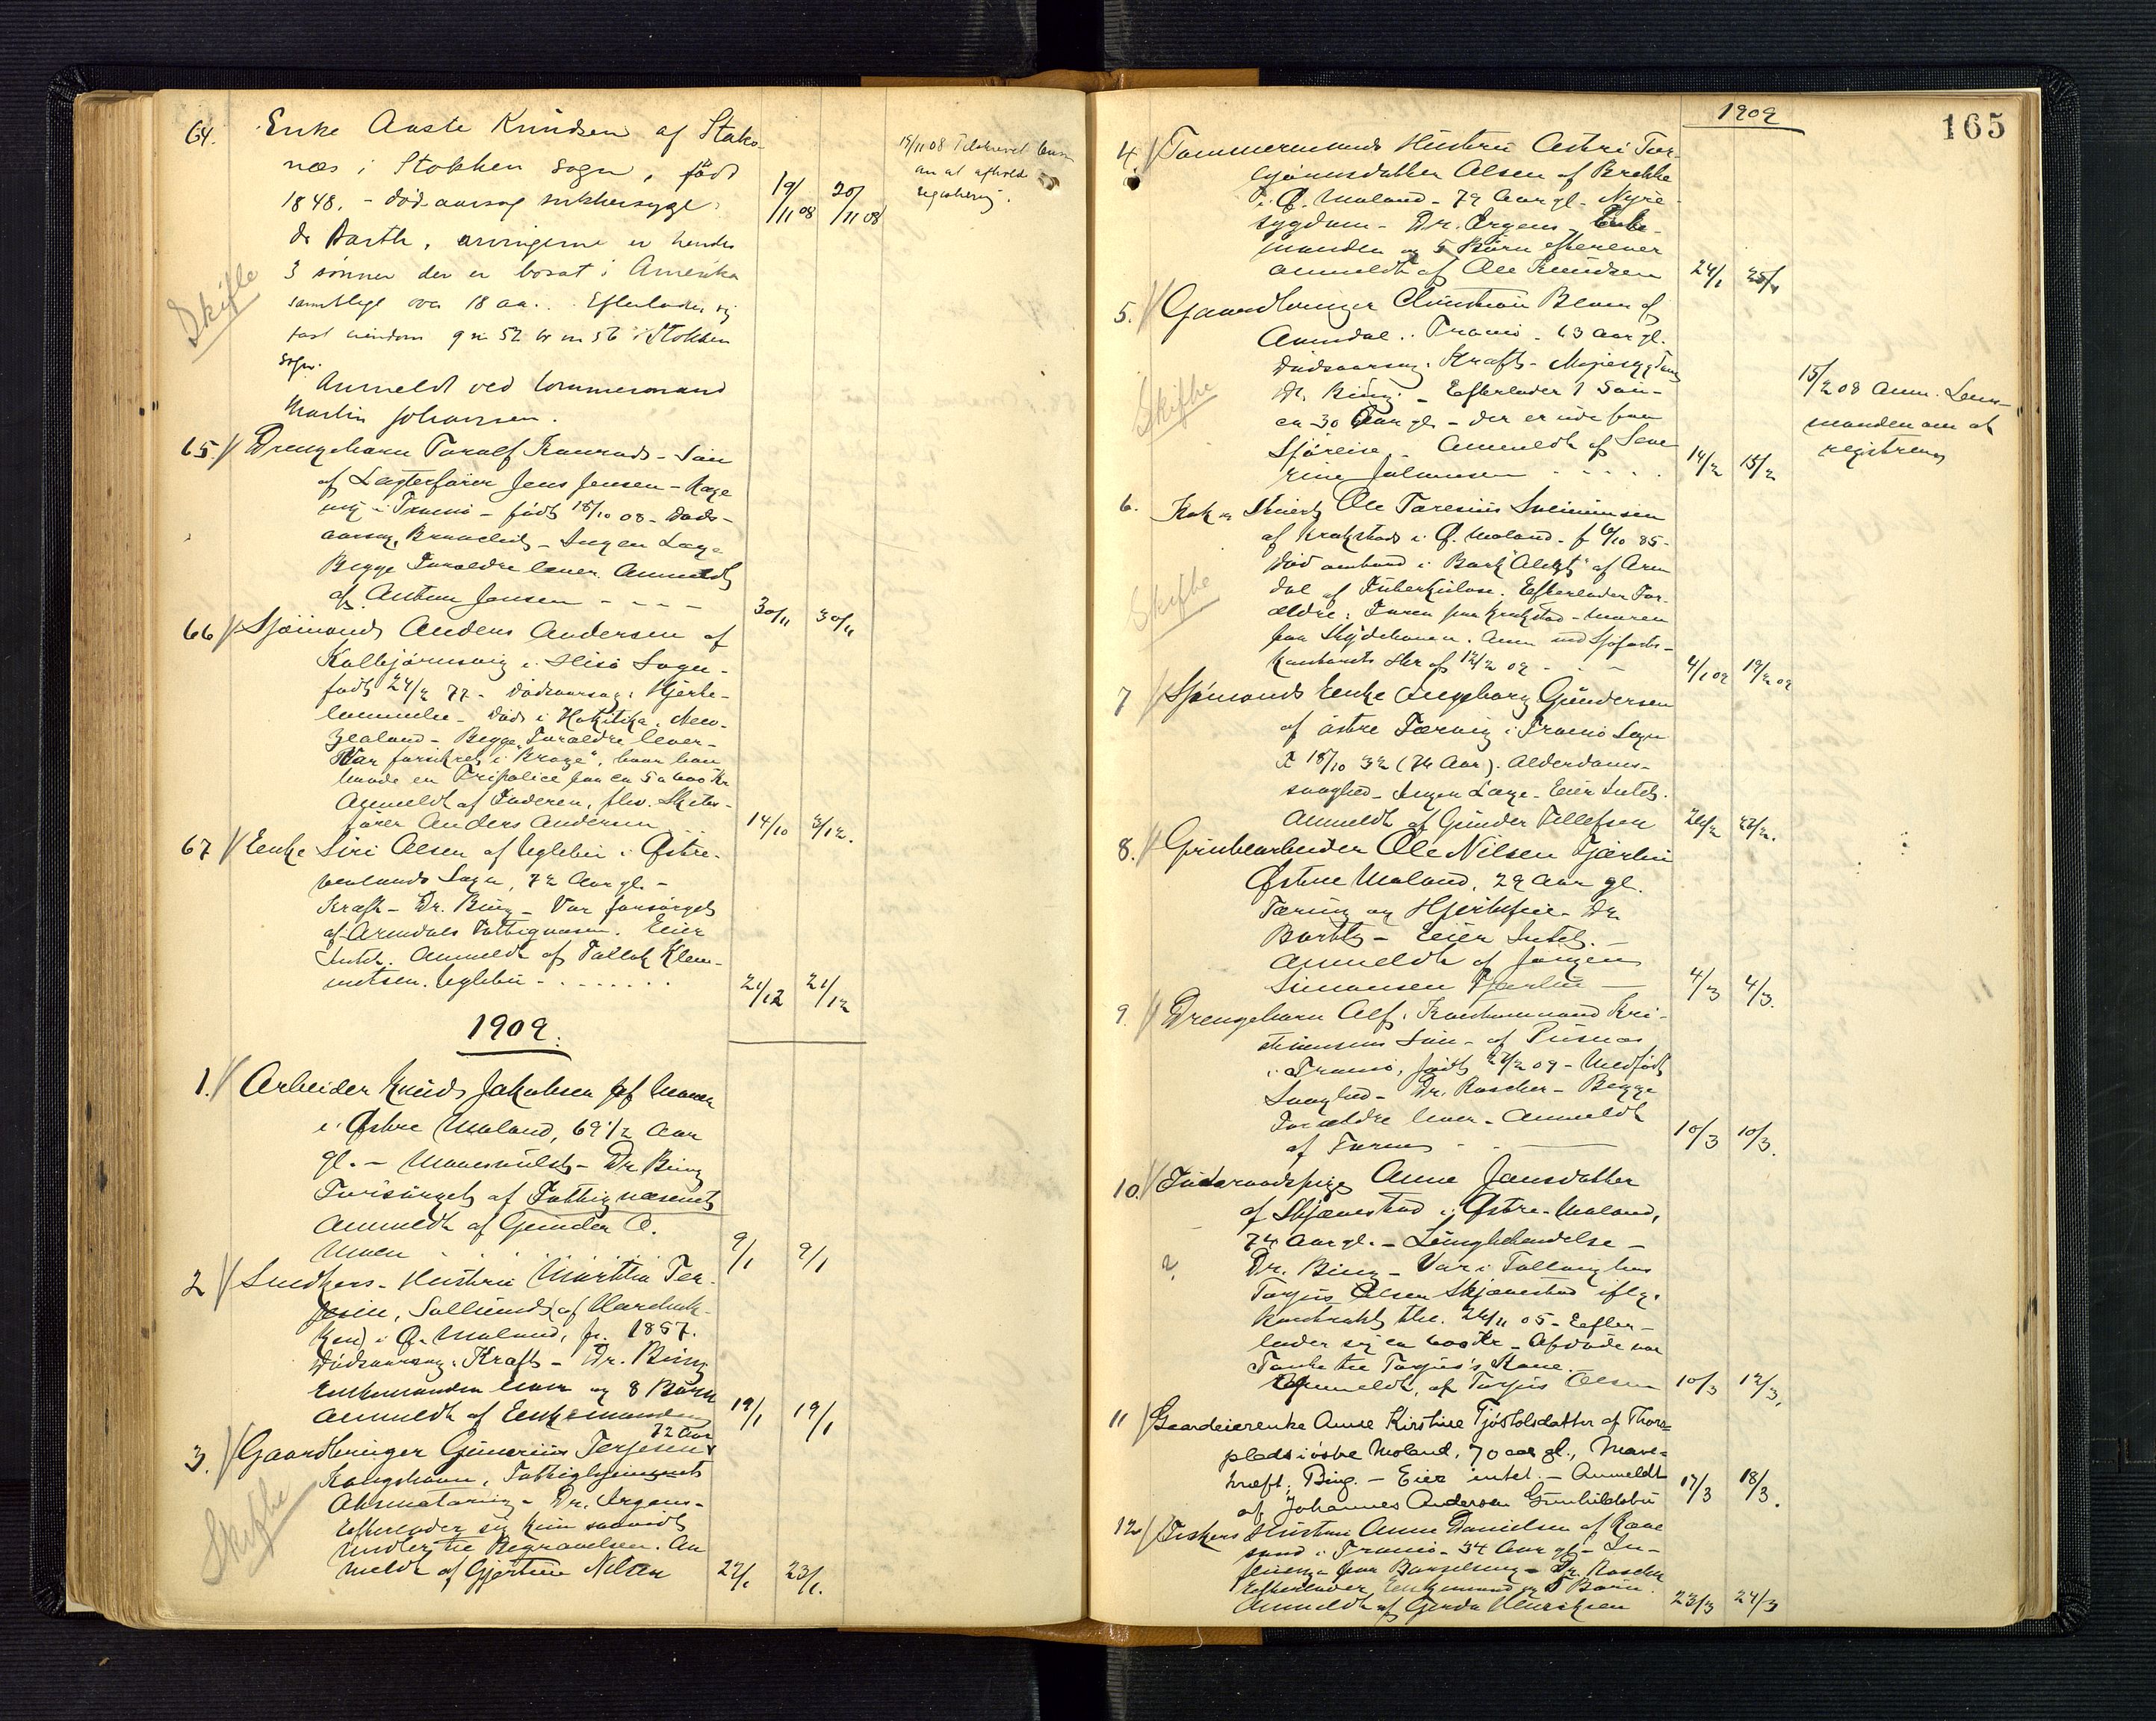 64. Enke Aaste Knudsen af Staks-
næs i Stokken sogn, født
1848. - dødsaarsag sukkersyge.
dr Barth, arvingerne er hendes
3 sønner der er bosat i Amerika
samtlige over 18 aar. Efterlader sig
fast eiendom g nr 52 br nr 56 i Stokken
sogn.
Anmeldt ved tømmermand
Martin Johansen.
19/11 08 20/11 08
19/11 08 Tilskrevet
om at afholde
registrering.
Skifte
65. Drengebarn Toralf Konrad - Søn
af Lagterfører Jens Jensen - Hage
vig i Tromø - født 18/10 08 - Døds-
aarsag, Bronchit - Ingen Læge
Begge Forældre lever. Anmeldt
af Anton Jensen - - - -
30/11 30/11
66 Sjømand Anders Andersen af
Kolbjørnsvig i Hisø Sogn -
født 24/2 77 - Dødsaarsag: Hjerte-
lammelse - Død i Hokitika, New-
Zealand - Begge Forældre lever -
Var forsikret i "Brage", hvor han
havde en Fripolice paa ca 5 a 600 Kr
Anmeldt af Faderen, fhv. Skibs-
fører Anders Andersen
14/10 3/12.
67 Enke Siri Olsen af Uglebu i Østre-
molands Sogn, 72 Aar gl. -
Kræft - Dr. Bing - Var forsørget
af Arendals Fattigvæsen. Eier
Intet. Anmeldt af Tallak Klem-
metsen. Uglebu - . . . . . .
21/12 21/12
1909.
1. Arbeider Knud Jakobsen af Moen
i Østre Moland, 69 1/2 Aar
gl. - Mavesvulst - Dr Bing
Forsørget af Fattigvæsenet
Anmeldt af Gunder O.
Moen . . . .
9/1 9/1
2 Snedkers - Hustru Marthia Ter-
jesen, Sollund (af
i Ø. Moland, f. 1857.
Dødsaarsag: Kræft - Dr. Bing
Enkemanden lever og 8 Børn
Anmeldt af Enkemanden
19/1 19/1
3. Gaardbruger Gunerius Terjesen 72 Aar
Kongshavn, Fattiglem
Dr. Irgens -
Efterlader sig kun saavidt
midler til Begravelsen. An
meldt af Gjertine Nilsen
22/1 23/1.
Skifte
1909
165
4. Tømmermands Hustru Astri Tor-
Olsen af Brekke
i Ø. Moland - 79 Aar gl. - Nyre-
sygdom - Dr. Irgens - Enke-
manden og 5 Børn efterlever
Anmeldt af Ole Knudsen
24/1 25/1
5. Gaardbruger Christian Bloem af
Arendal i Tromø - 63 Aar gl.
Dødsaarsag: Kræft - Mavesygdom
Dr. Bing. - Efterlader 1 Søn -
ca 30 Aar gl - der er ude paa
Sjøreise - Anmeldt af Seve
rine Johnsen - - - -
14/2 15/2
15/2 08 Anm. Lens-
manden om at
registrere
Skifte
6. Kok og Stuert Ole Taresius Sveinunsen
af Krakstad i Ø. Moland - f 6/10 85 -
Død ombord i Bark "Alert" af Aren
dal af Tuberkulose. Efterlader For-
ældre: Faren paa Krakstad - Moren
paa Skydehavnen. Anm ved Sjøfarts-
kontorets skr af 12/2 09 - -
4/1 09 19/2 09
Skifte
7 Sjømands Enke Ingeborg Gundersen
af Østre Færvig i Tromø Sogn
F 18/10 32 (76 Aar). Alderdoms-
svaghed - Ingen Læge - Eier Intet.
Anmeldt af Gunder Tellefsen
26/2 27/2.
8. Grubearbeider Ole Nilsen Tjærlin
Østre Moland, 29 Aar gl.
Tæring og Hjertefeil - Dr.
Barth - Eier Intet. -
Anmeldt af Jørgen
Simonsen Tjærlin -
4/3 4/3.
9. Drengebarn Alf, Konstmand Kri-
stiansens Søn - af Pusnæs
i Tromø, født 27/2 09 - Medfødt
Svaghed - Dr. Roscher - Begge
Forældre lever. Anmeldt
af Faren - -
10/3 10/3.
10. Føderaadspige Anne Jensdatter
af Skjævestad i Østre-Moland,
74 Aar gl. - Lungebetændelse -
Dr. Bing - Var i Følloug hos
Torjus Olsen Skjævestad iflg.
Kontrakt thl. 26/11 05 - Efter-
lader sig ca 600 Kr - Afdøde var
Tante til Torjus's Kone. -
Anmeldt af Torjus Olsen
10/3 12/3.
11 Gaardeierenke Anne Kirstine Tjøstolsdatter af Thors-
plads i østre Moland, 70 aar gl., Mave-
kræft; Bing. - Eier intet. - Anmeldt
af Johannes Andersen Gunhildsbu
17/3 18/3.
12 Fiskers Hustru Anne Danielsen af Ræve
sand i Tromø - 34 Aar gl - In-
fluenza paa Barselseng - Dr. Roscher
Efterlader Enkemand og 5 Børn.
Anmeldt af Gerda Henriksen
23/3 24/3